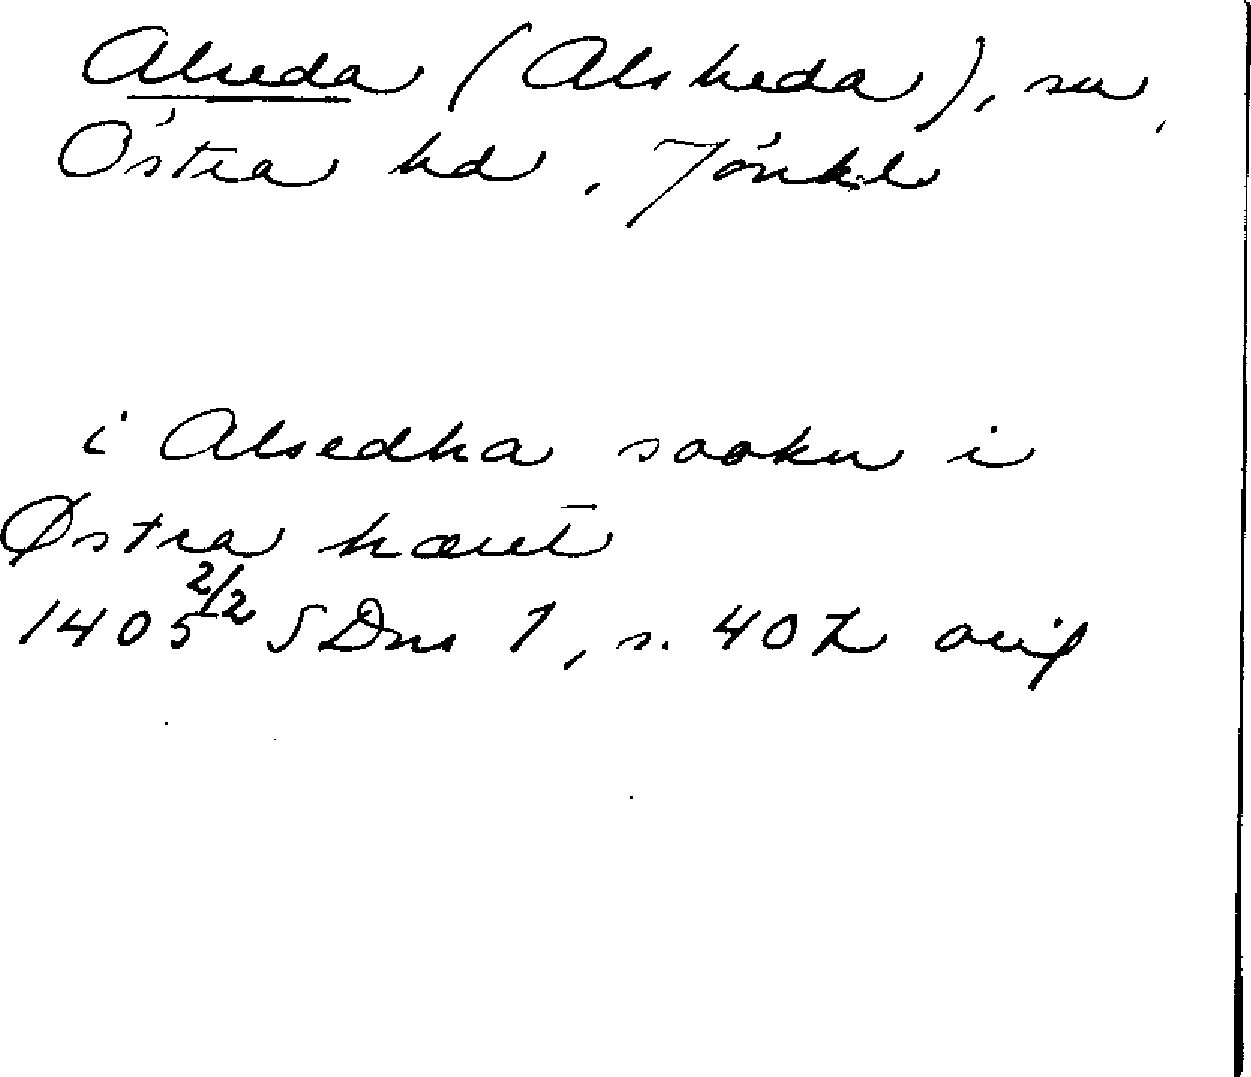 Alseda (Alsheda), sn,
Östra hd, Jönkl
i Alsedha sookn i
Østra hæret̄
1405 2/2 SDns 1, s. 407 orig